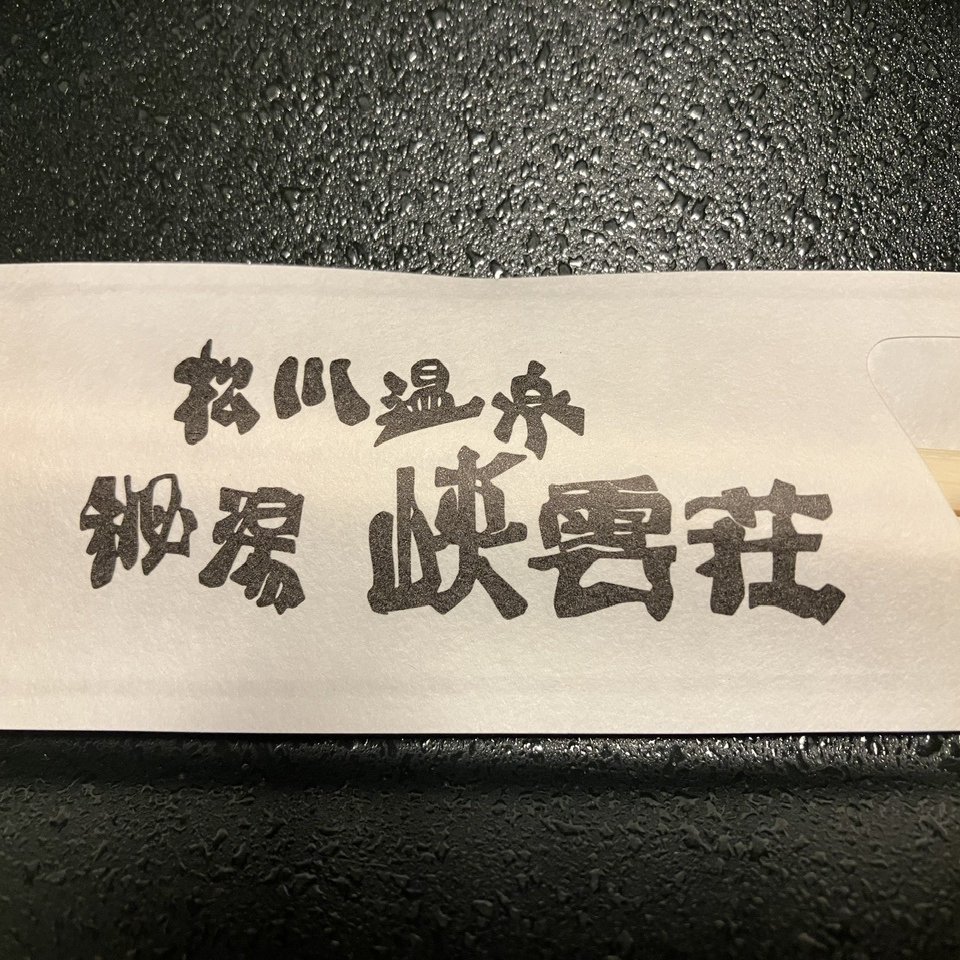 松川温泉
秘湯 峡雲荘